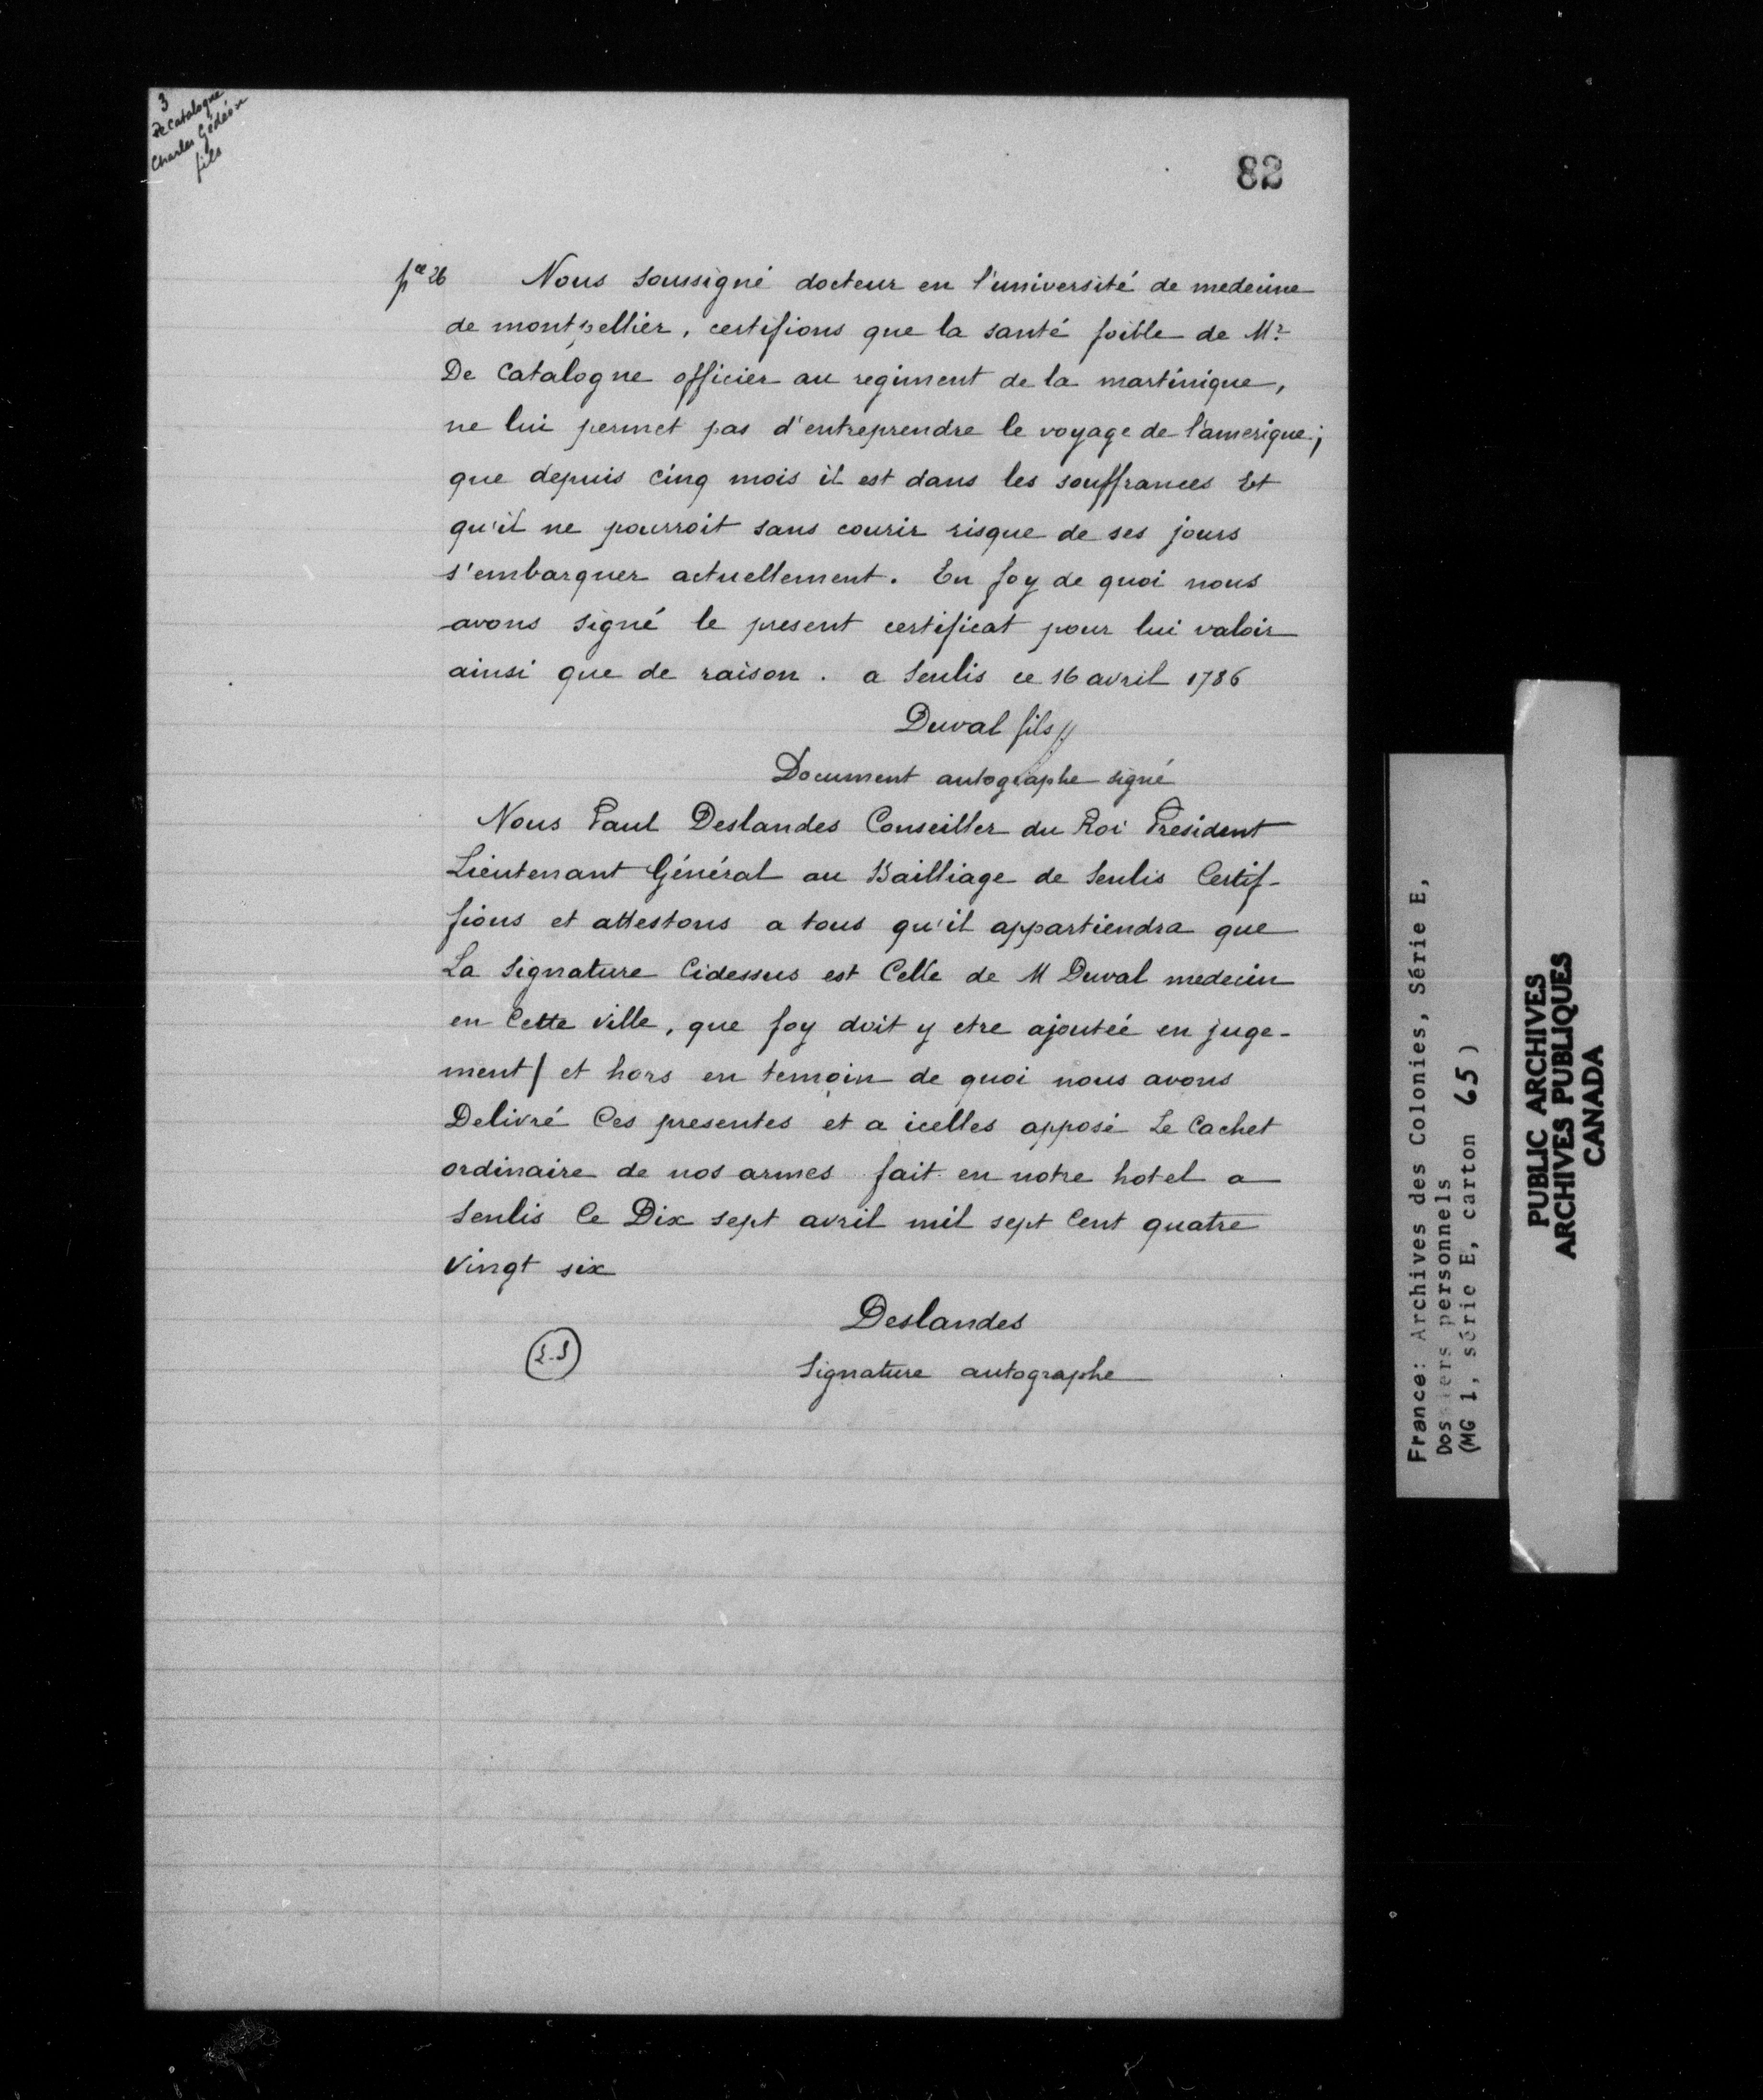 3
De Catalogue
Charles Gédéon
fils
82
pce 26 Nous soussigné docteur en l'université de medecine
de montpellier, certifions que la santé foible de Mr
De Catalogne officier au regiment de la martinique,
ne lui permet pas d'entreprendre le voyage de l'amerique;
que depuis cinq mois il est dans les souffrances Et
qu'il ne pourroit sans courir risque de ses jours
s'embarquer actuellement. En foy de quoi nous
avons signé le present certificat pour lui valoir
ainsi que de raison. a Senlis ce 16 avril 1786
Duval fils
Document autographe signé
Nous Paul Deslandes Conseiller du Roi President
Lieutenant Général au Bailliage de Senlis Certif-
fions et attestons a tous qu'il appartiendra que
La Signature Cidessus est Celle de M Duval medecin
en Cette Ville, que foy doit y etre ajoutéé en juge-
ment/ et hors en temoin de quoi nous avons
Delivré Ces presentes et a icelles apposé Le Cachet
ordinaire de nos armes fait en notre hotel a
Senlis Ce Dix sept avril mil sept Cent quatre
Vingt six
Deslandes
L.S
Signature autographe
France: Archives des Colonies, Série E,
Dossiers personnels
(MG 1, série E, carton 65)
PUBLIC ARCHIVES
ARCHIVES PUBLIQUES
CANADA